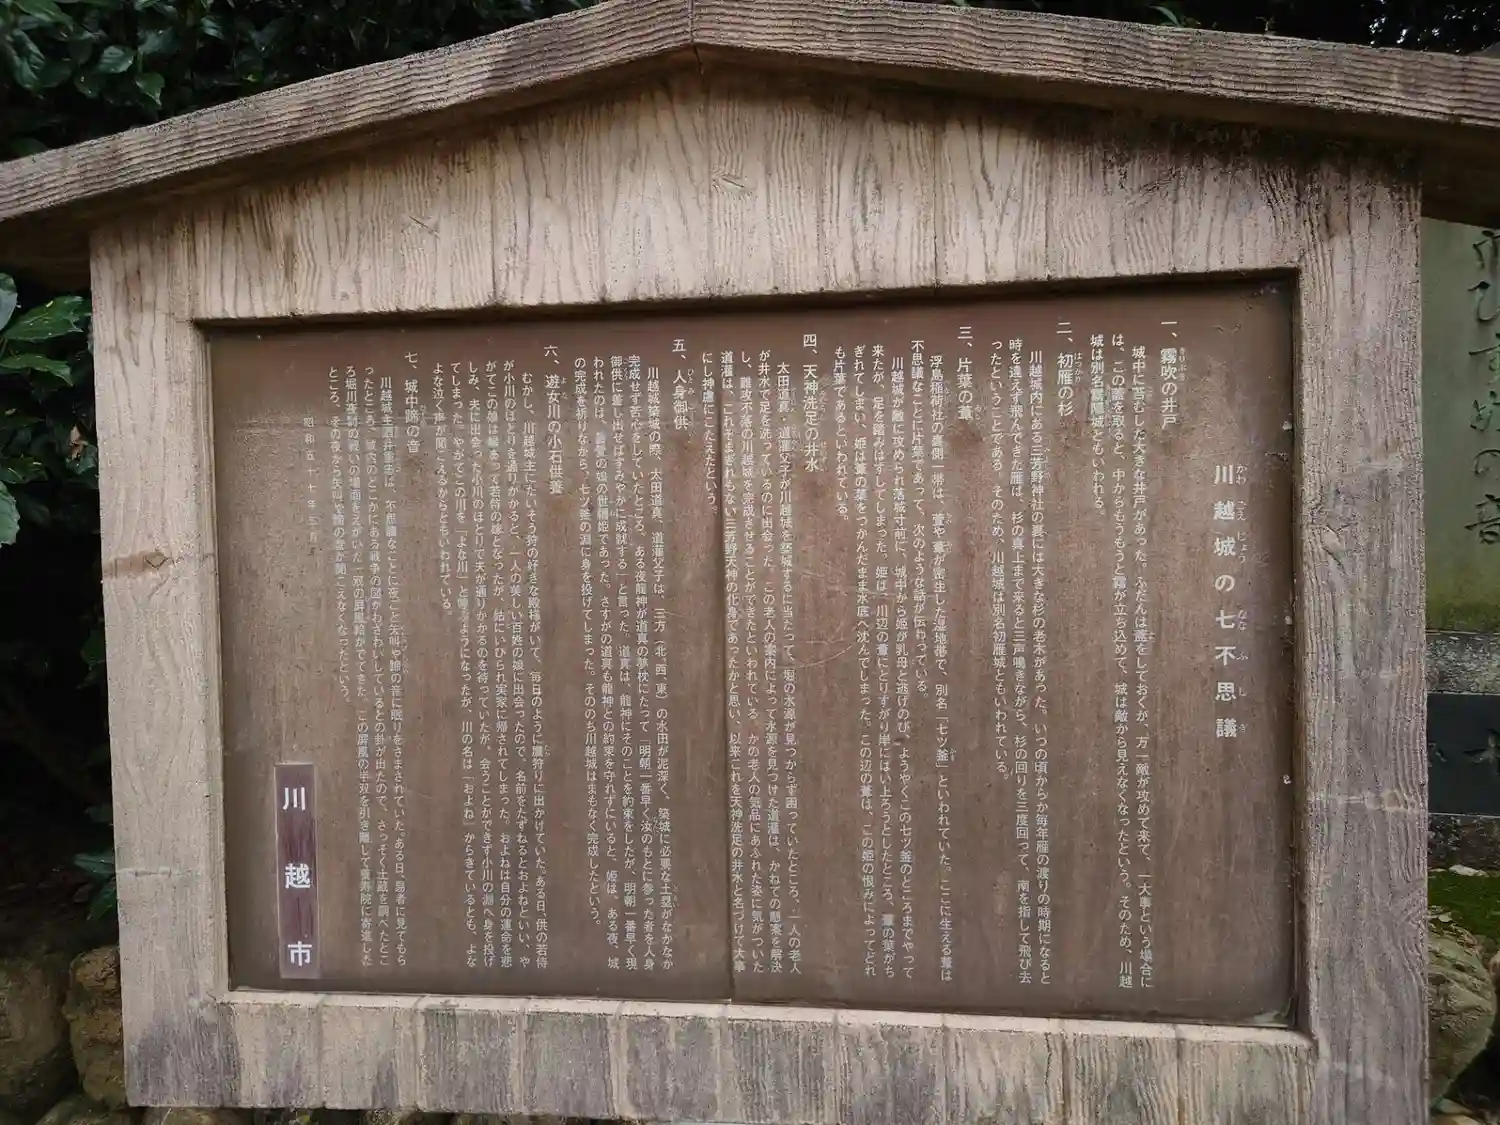 川越城の七不思議
一、霧吹の井戸
城中に苔むした大きな井戸があった。ふだんは蓋をしておくが、万一敵が攻めて来て、一大事という場合に
は、この蓋を取ると、中からもうもうと霧が立ち込めて、城は敵から見えなくなったという。そのため、川越
城は別名霧隠城ともいわれる。
二、初雁の杉
川越城内にある三芳野神社の裏には大きな杉の老木があった。いつの頃からか毎年雁の渡りの時期になると
時を違えず飛んできた雁は、杉の真上まで来ると三声鳴きながら、杉の回りを三度回って、南を指して飛び去
ったということである。そのため、川越城は別名初雁城ともいわれている。
三、片葉の葦
浮島稲荷社の裏側一帯は、萱や葦が密生した湿地帯で、別名「七ツ釜」といわれていた。ここに生える葦は
不思議なことに片葉であって、次のような話が伝わっている。
川越城が敵に攻められ落城寸前に、城中から姫が乳母と逃げのび、ようやくこの七ツ釜のところまでやって
来たが、足を踏みはずしてしまった。姫は、川辺の葦にとりすがり岸にはい上ろうとしたところ、葦の葉がち
ぎれてしまい、姫は葦の葉をつかんだまま水底へ沈んでしまった。この辺の葦は、この姫の恨みによってどれ
も片葉であるといわれている。
四、天神洗足の井水
太田道真・道灌父子が川越城を築城するに当たって、堀の水源が見つからず困っていたところ、一人の老人
が井水で足を洗っているのに出会った。この老人の案内によって水源を見つけた道灌は、かねての懸案を解決
し、難攻不落の川越城を完成させることができたといわれている。かの老人の気品にあふれた姿に気がついた
道灌は、これぞまぎれもない三芳野天神の化身であったかと思い、以来これを天神洗足の井水と名づけて大事
にし神慮にこたえたという。
五、人身御供
川越城築城の際、太田道真、道灌父子は、三方（北、西、東）の水田が泥深く、築城に必要な土塁がなかなか
完成せず苦心をしていたところ、ある夜龍神が道真の夢枕にたって「明朝一番早く汝のもとに参った者を人身
御供に差し出せばすみやかに成就する」と言った。道真は、龍神にそのことを約束をしたが、明朝一番早く現
われたのは、最愛の娘の世禰姫であった。さすがの道真も龍神との約束を守れずにいると、姫は、ある夜、城
の完成を祈りながら、七ツ釜の淵に身を投げてしまった。そののち川越城はまもなく完成したという。
六、遊女川の小石供養
むかし、川越城主にたいそう狩の好きな殿様がいて、毎日のように鷹狩りに出かけていた。ある日、供の若侍
が小川のほとりを通りがかると、一人の美しい百姓の娘に出会ったので、名前をたずねるとおよねといい、や
がてこの娘は縁あって若侍の嫁となったが、姑にいびられ実家に帰されてしまった。およねは自分の運命を悲
しみ、夫に出会った小川のほとりで夫が通りかかるのを待っていたが、会うことができず小川の淵へ身を投げ
てしまった。やがてこの川を「よな川」と呼ぶようになったが、川の名は「およね」からきているとも、よな
よな泣く声が聞こえるからともいわれている。
七、城中蹄の音
川越城主酒井重忠は、不思議なことに夜ごと矢叫や蹄の音に眠りをさまされていた。ある日、易者に見てもら
ったところ、城内のどこかにある戦争の図がわざわいしているとの卦が出たので、さっそく土蔵を調べたとこ
ろ堀川夜討の戦いの場面をえがいた一双の屏風絵がでてきた。この屏風の半双を引き離して養寿院に寄進した
ところ、その夜から矢叫や蹄の音が聞こえなくなったという。
昭和五十七年三月
川越市